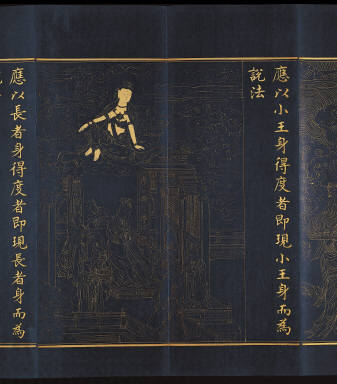 應以小王身得度者即現小王身而為
說法
應以長者身得度者即現長者身而為